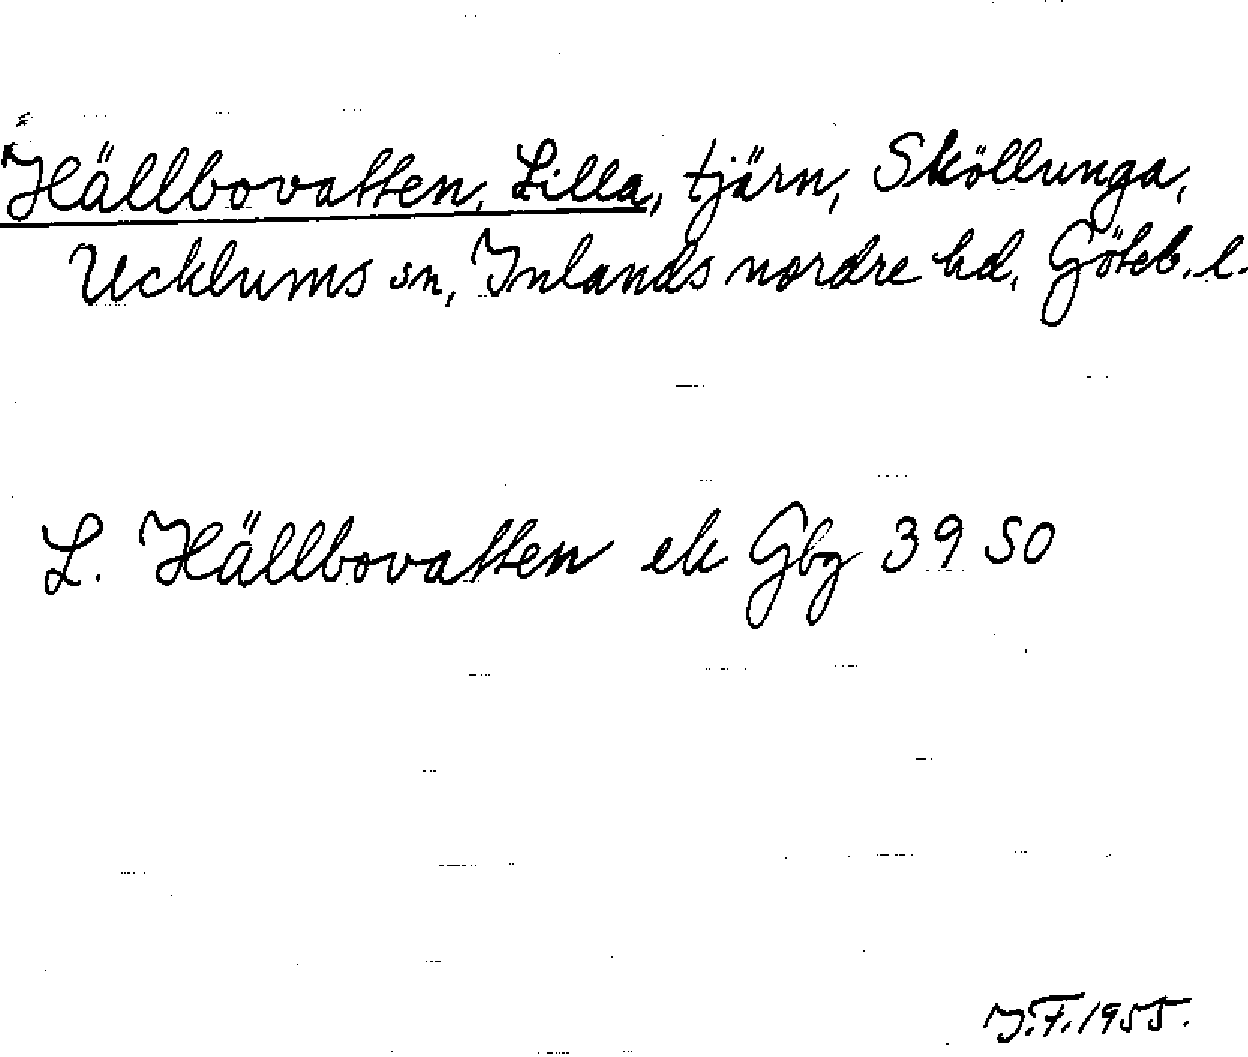 Hällbovatten, Lilla, tjärn, Sköllunga,
Ucklums sn, Inlands nordre hd, Göteb. l.
L. Hällbovatten ek Gbg 39 SO
J.F. 1955.